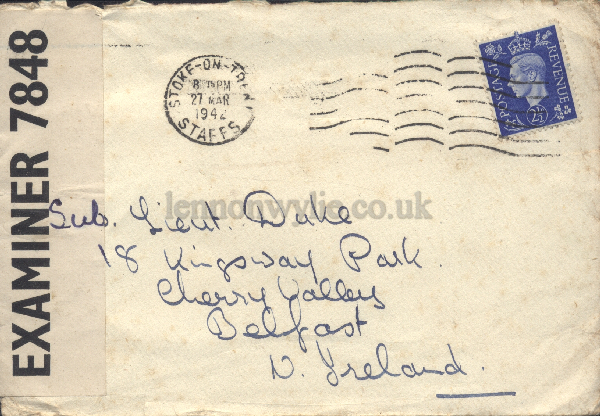 EXAMINER 7848
STOKE-ON-TREN
8 PM
27 MAR
1942
STAFFS
POSTAGE
REVENUE
2½
lennonwylie.co.uk
Sub. Lieut. Duke
18 Kingsway Park.
Cherry Valley
Belfast
N. Ireland.